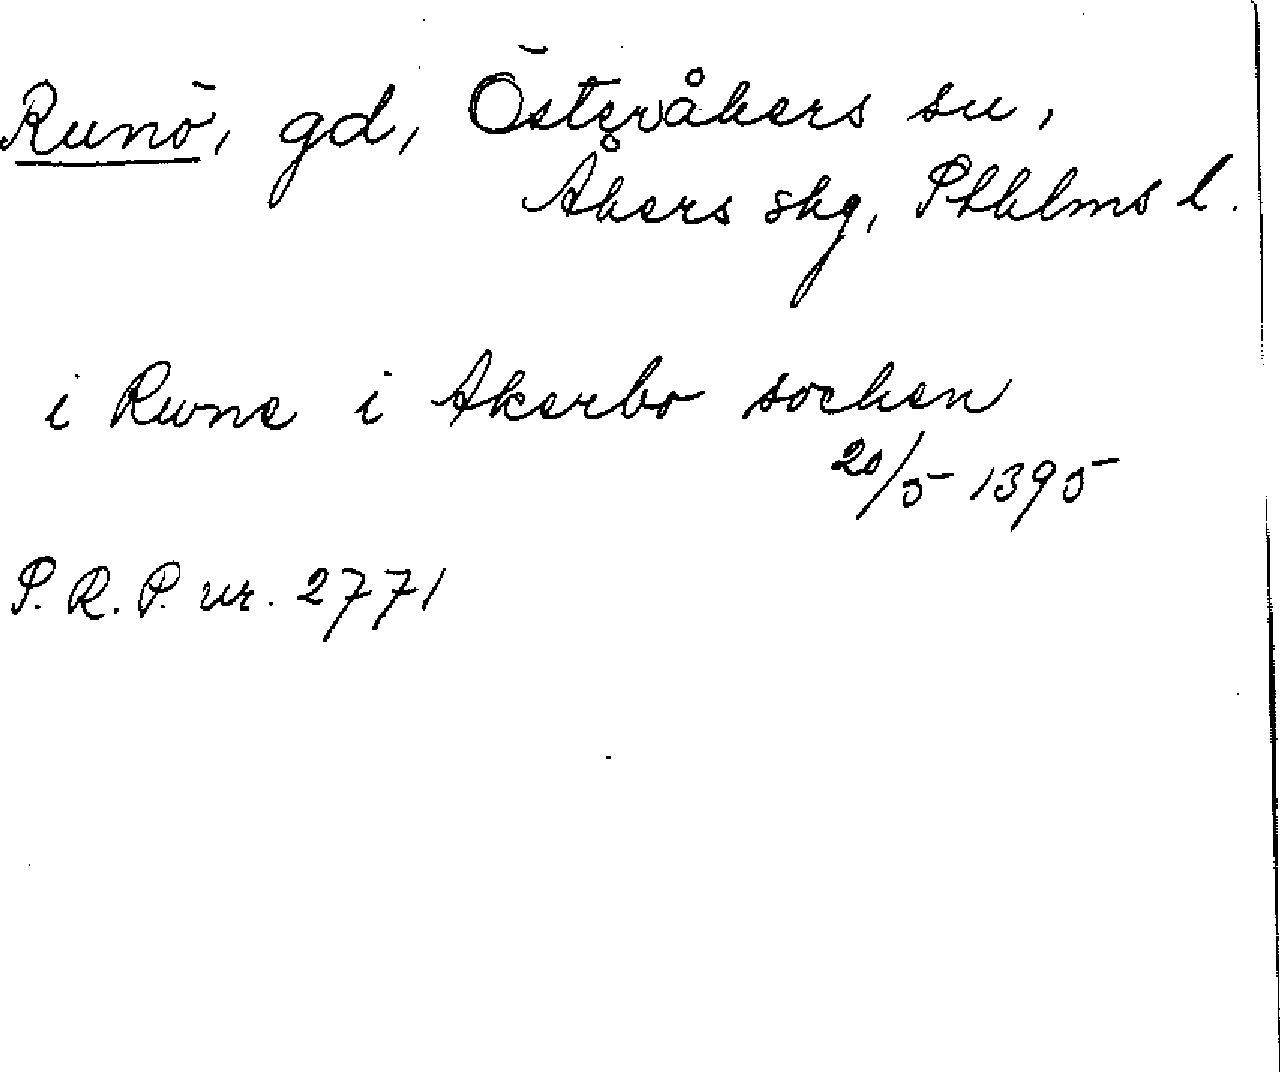 Runö, gd, Österåkers sn,
Åkers skg, Sthlms l.
i Rwne i Akerbo socken
20/5 1395
S.R.P. nr. 2771